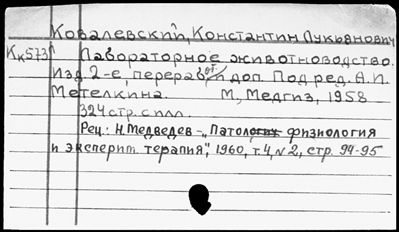 Ковалевский, Константин Лукьянович
Кк573 Лабораторное животноводство.
Изд. 2-е, перераб. и доп. Под ред. А.П.
Метелкина. М., Медгиз, 1958
324 стр. с илл.
Рец.: Н. Медведев – „Патол. физиология
и эксперит. терапия", 1960, т. 4, № 2, стр. 94-95